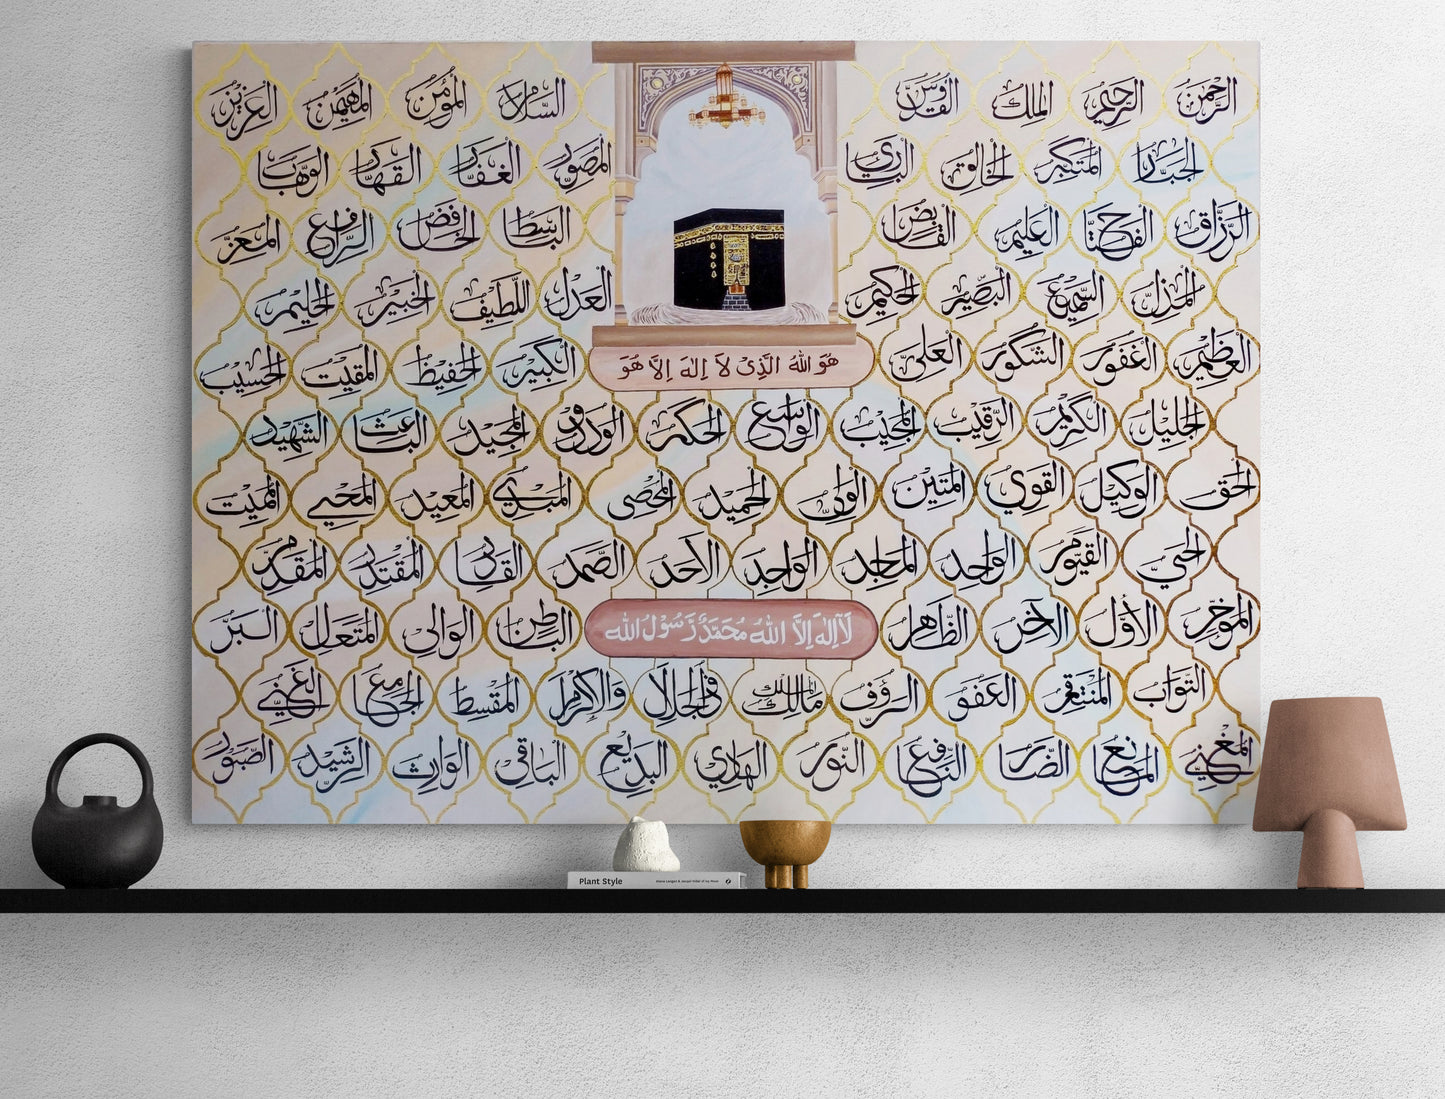 الرَّحْمٰنُ الرَّحِيْمُ المَلِكُ القُدُّوْسُ السَّلَامُ المُؤْمِنُ المُهَيْمِنُ العَزِيْزُ
الجَبَّارُ المُتَكَبِّرُ الخَالِقُ البَارِئُ المُصَوِّرُ الغَفَّارُ القَهَّارُ الوَهَّابُ
الرَّزَّاقُ الفَتَّاحُ العَلِيْمُ القَابِضُ البَاسِطُ الخَافِضُ الرَّافِعُ المُعِزُّ
المُذِلُّ السَّمِيْعُ البَصِيْرُ الحَكِيْمُ العَدْلُ اللَّطِيْفُ الخَبِيْرُ الحَلِيْمُ
العَظِيْمُ الغَفُوْرُ الشَّكُوْرُ العَلِيُّ الكَبِيْرُ الحَفِيْظُ المُقِيْتُ الحَسِيْبُ
هُوَ اللهُ الَّذِىْ لَا اِلٰهَ اِلَّا هُوَ
الجَلِيْلُ الكَرِيْمُ الرَّقِيْبُ المُجِيْبُ الوَاسِعُ الحَكِيْمُ الوَدُوْدُ المَجِيْدُ البَاعِثُ الشَّهِيْدُ
الحَقُّ الوَكِيْلُ القَوِيُّ المَتِيْنُ الوَلِيُّ الحَمِيْدُ المُحْصِى المُبْدِئُ المُعِيْدُ المُحْيِي المُمِيْتُ
الحَيُّ القَيُّوْمُ الوَاجِدُ المَاجِدُ الوَاحِدُ الأَحَدُ الصَّمَدُ القَادِرُ المُقْتَدِرُ المُقَدِّمُ
المُؤَخِّرُ الأَوَّلُ الآخِرُ الظَّاهِرُ البَاطِنُ الوَالِي المُتَعَالُ البَرُّ
لَآ اِلٰهَ اِلَّا اللهُ مُحَمَّدٌ رَّسُوْلُ الله
التَّوَّابُ المُنْتَقِمُ العَفُوُّ الرَّؤُفُ مَالِكُ المُلْكِ ذُوالْجَلَالِ وَالْإِكْرَامِ المُقْسِطُ الجَامِعُ الغَنِيُّ
المُغْنِيُّ المَانِعُ الضَّارُّ النَّافِعُ النُّوْرُ الهَادِي البَدِيْعُ البَاقِي الوَارِثُ الرَّشِيْدُ الصَّبُوْرُ
Plant Style